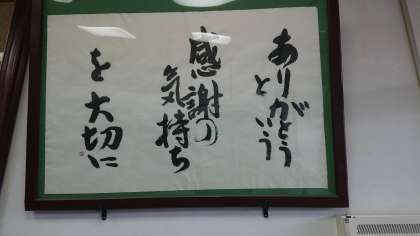 ありがとう
という
感謝の
気持ち
を大切に